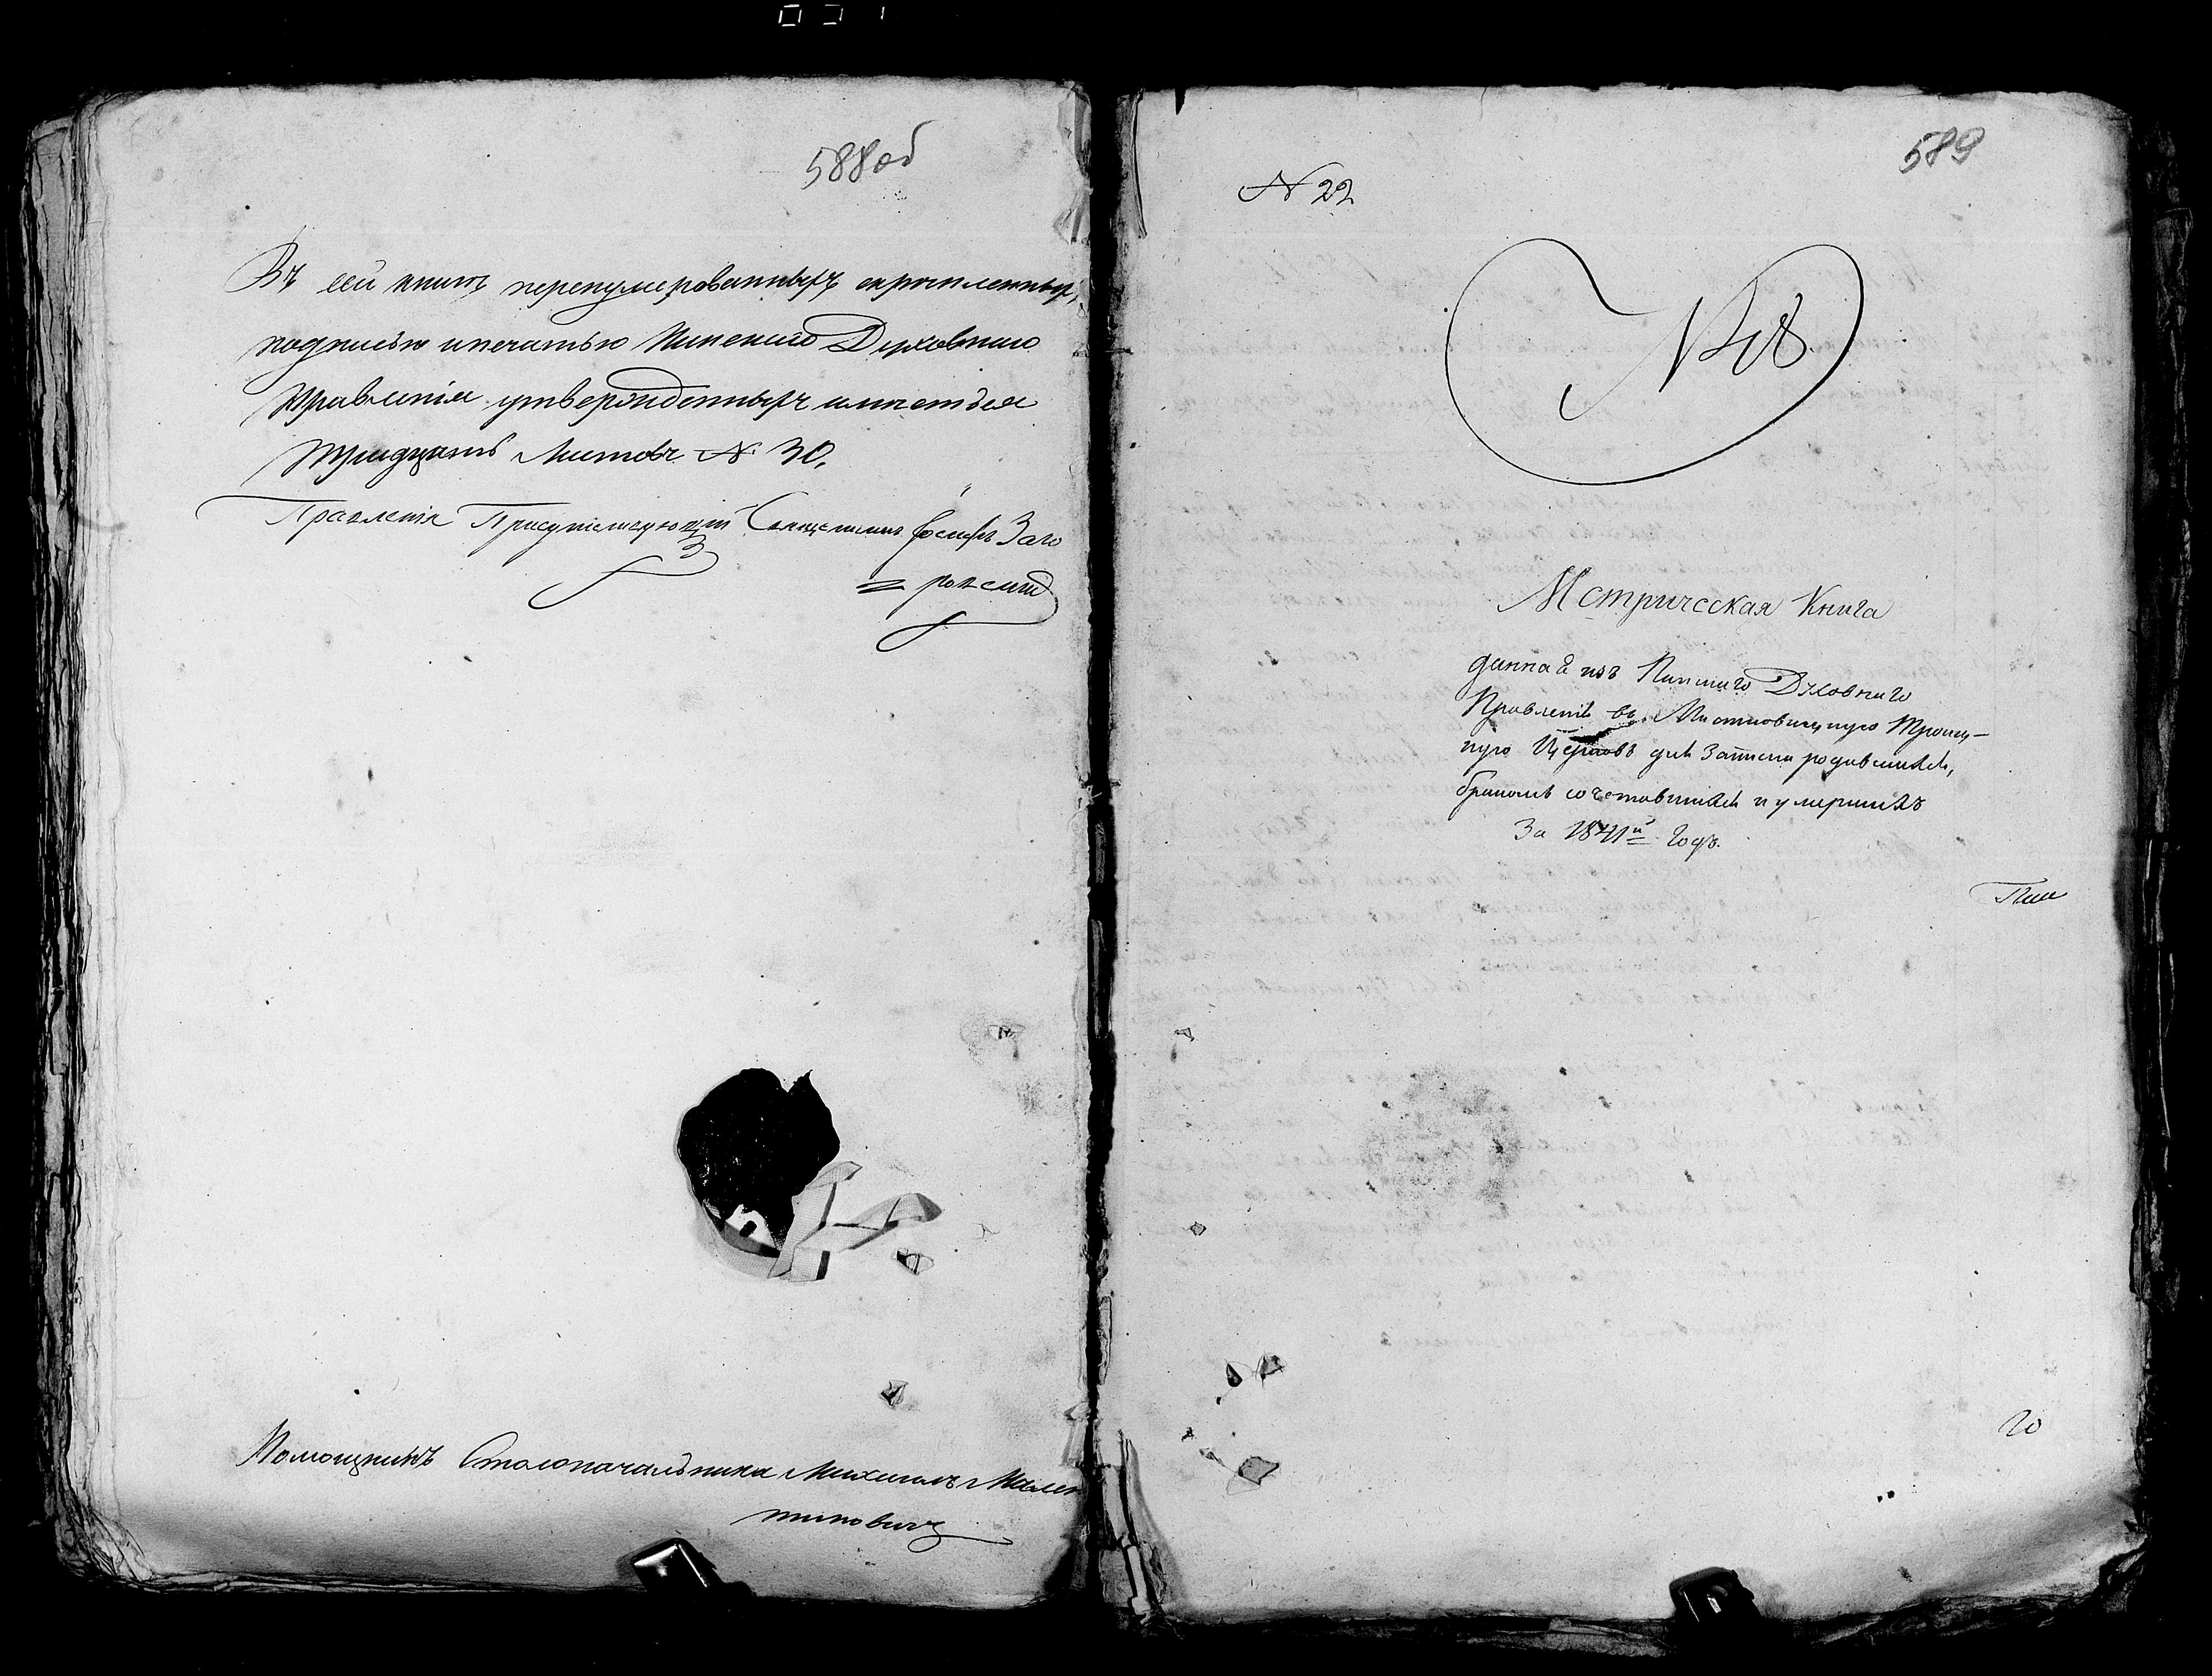 588 об
Въ сей книгѣ перенумерованныхъ скрѣпленныхъ
подписью и печатью Пинскаго Духовнаго
Правленія утвержденныхъ имѣется
тридцать листовъ № 30.
Правленія Присутствующій Священникъ Іосифъ Заго
ровскій
Помощникъ Столоначальника Михаилъ
тиновичъ
589
№ 22
№
Метрическая Книга
данная изъ Пинскаго Духовнаго
Правленія въ Троиц-
кую Церковь для записки родившихся,
бракомъ сочетавшихся и умершихъ
За 1841й годъ.
Пин
го